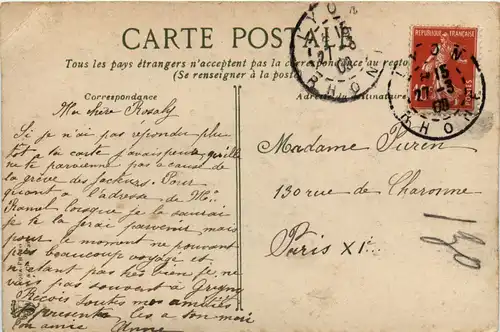 CARTE POSTALE
Tous les pays étrangers n'acceptent pas la correspondance au recto
(Se renseigner à la poste)
Correspondance
Ma chère Rosaly
Si je n'ai pas répondu plu
tot a ta carte j'avais peur qu'elle
ne te parvienne pas a cause de
la grève des facteurs. Pour
quant a l'adresse de Mr
lorsque je la saurai
je te la ferai parvenir mais
pour le moment ne pouvant
pas beaucoup voyagé et
n'étant pas très bien je ne
vais pas souvent à Grigny
Reçois toutes mes amitiés
Présente les a son mari
ton amie Anne
Madame Puren
130 rue de Charonne
Paris XIe
RÉPUBLIQUE FRANÇAISE
POSTES
LYON
RHONE
LYON
RHONE